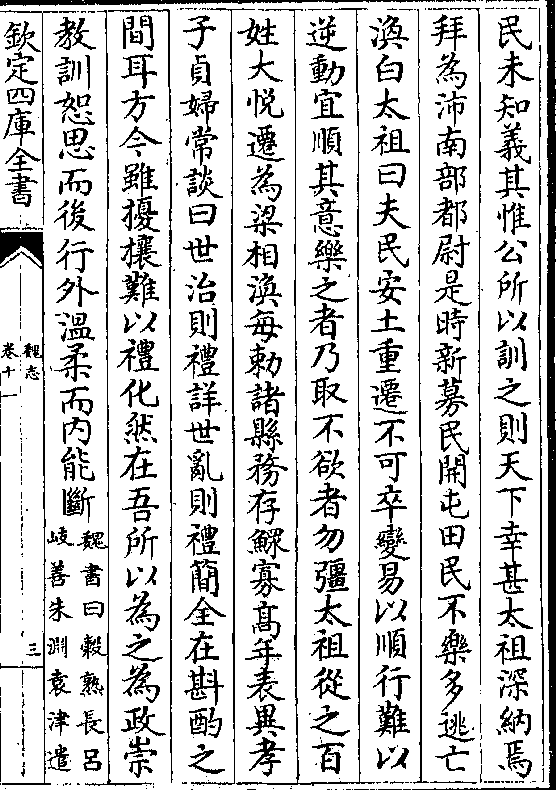 民未知義其惟公所以訓之則天下幸甚太祖深納焉
拜為沛南部都尉是時新募民開屯田民不樂多逃亡
渙白太祖曰夫民安土重遷不可卒變易以順行難以
逆動宜順其意樂之者乃取不欲者勿彊太祖從之百
姓大悅遷為梁相渙每勅諸縣務存鰥寡高年表異孝
子貞婦常談曰世治則禮詳世亂則禮簡全在斟酌之
間耳方今雖擾攘難以禮化然在吾所以為之為政崇
教訓恕思而後行外温柔而內能斷
魏書曰穀熟長呂
岐善朱淵袁津遣
欽定四庫全書
魏志
卷十一
三